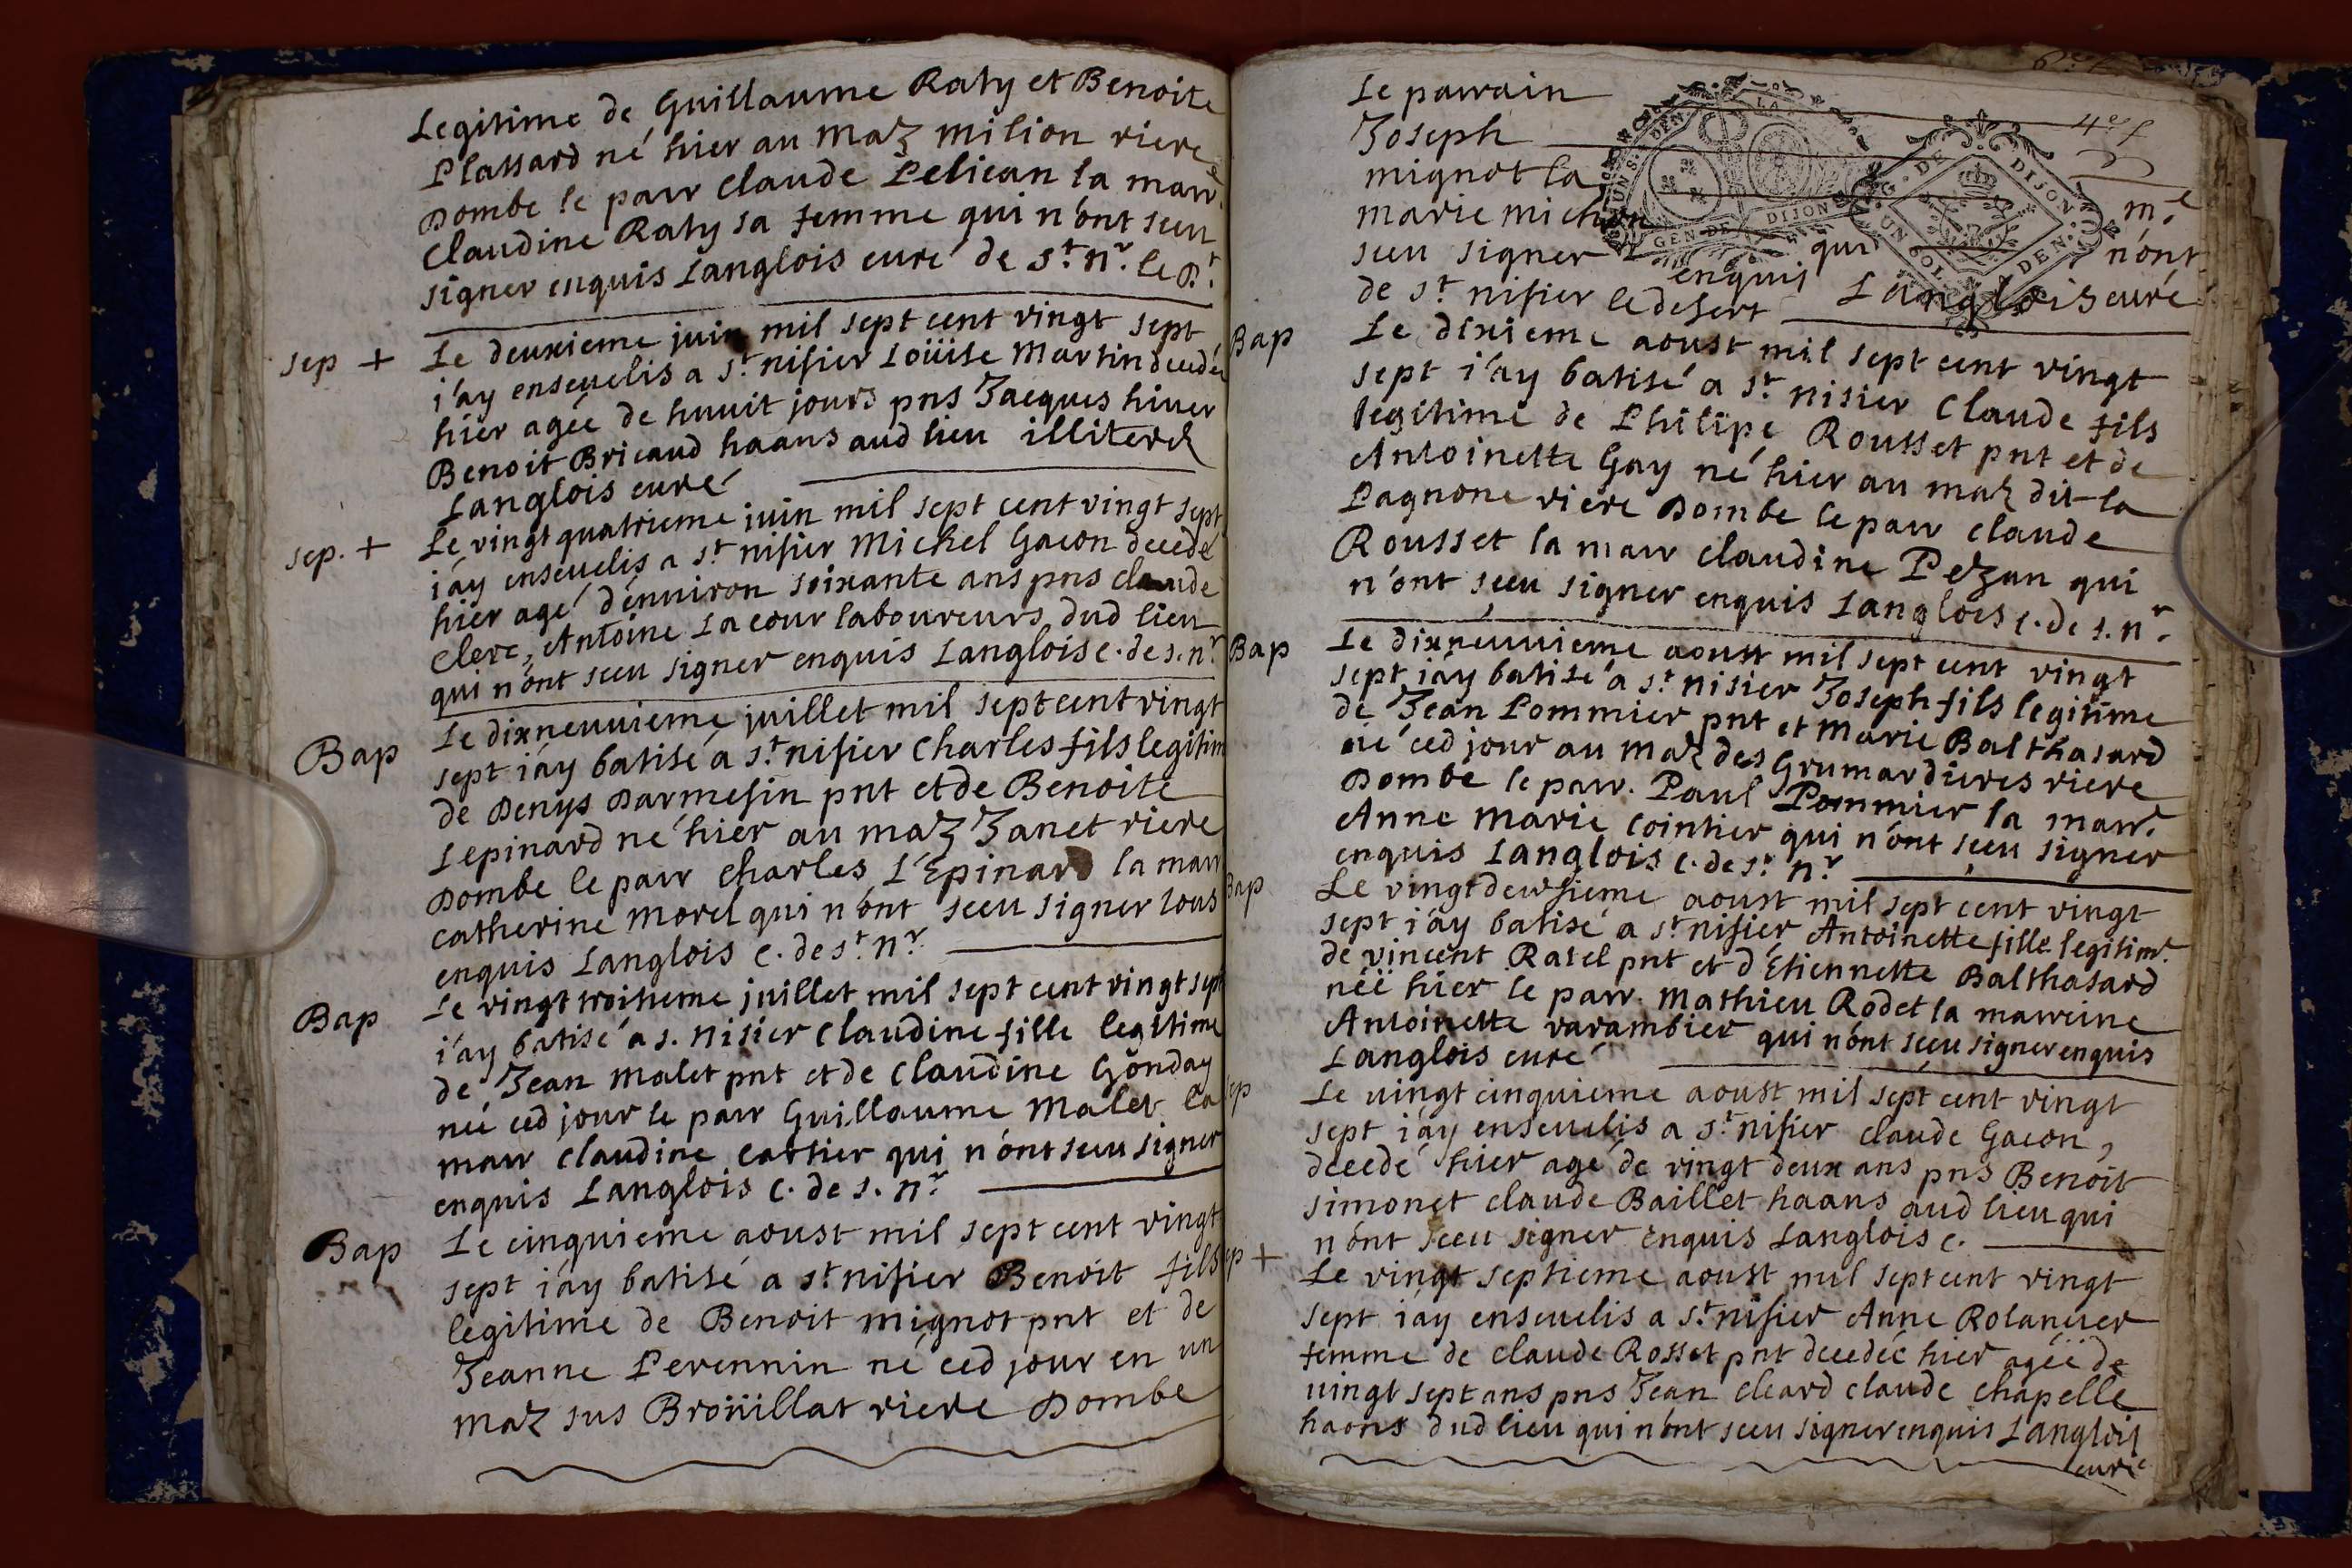 Legitime de Guillaume Raty et Benoite
Plassard né hier au maz milion riere
Dombe le parr Claude Pelican la marr.
Claudine Raty sa femme qui n'ont sceu
signer enquis Langlois curé de st. nr. le Dt.
sep + Le deuxieme juin mil sept cent vingt sept
i'ay enseuelis a st. nisier Loüise Martin decedée
hier agée de huuit jours pns Jacques hiuer
Benoit Bricaud haans aud lieu illiterez
Langlois curé
sep. + Le vingt quatrieme juin mil sept cent vingt sept
i'ay enseuelis a st. nisier Michel Gacon decedé
hier agé d'enuiron soixante ans pns claude
Clerc, Antoine Lacour laboureurs dud lieu
qui n'ont sceu signer enquis Langlois c. de s. nr.
Bap Le dixneuuieme juillet mil sept cent vingt
sept i'ay batisé a st. nisier Charles fils legitim
de Denys Darmesin pnt et de Benoite
Lepinard né hier au maz Janet riere
Dombe le parr Charles L'Epinard la marr
catherine Morel qui n'ont sceu signer tous
enquis Langlois c. de st. nr.
Bap Le vingt troisieme juillet mil sept cent vingt sept
i'ay batisé a s. nisier Claudine fille legitime
de Jean Malet pnt et de Claudine Gonday
née ced jour le parr Guillaume Malet la
marr Claudine Cartier qui n'ont sceu signer
enquis Langlois c. de s. nr.
Bap Le cinquieme aoust mil sept cent vingt
sept i'ay batisé a st nisier Benoit fils
legitime de Benoit mignot pnt et de
Jeanne Perennin né ced jour en un
maz sus Broüillat riere Dombe
Le parrain
Joseph
mignot la
marie michon qui n'ont
sceu signer enquis Langlois curé
de st. nisier le desert
Bap Le dixieme aoust mil sept cent vingt
sept i'ay batisé a st. nisier Claude fils
legitime de Philipe Rousset pnt et de
Antoinette Gay né hier au maz dit la
Pagnone riere Dombe le parr claude
Rousset la marr claudine Pezan qui
n'ont sceu signer enquis Langlois c. de s. nr.
Bap Le dixneuuieme aoust mil sept cent vingt
sept i'ay batisé a st. nisier Joseph fils legitime
de Jean Pommier pnt et Marie Balthasard
né ced jour au maz des Grumardieres riere
Dombe le parr. Paul Pommier la marr.
Anne Marie Cointier qui n'ont sceu signer
enquis Langlois c. de st. nr.
Bap Le vingt deuxsieme aoust mil sept cent vingt
sept i'ay batisé a st. nisier Antoinette fille legitime
de vincent Ratel pnt et d'Etiennette Balthasard
née hier le parr. Mathieu Rodet la marreine
Antoinette varambier qui n'ont sceu signer enquis
Langlois curé
sep Le uingt cinquieme aoust mil sept cent vingt
sept i'ay enseuelis a st. nisier claude Gacon,
decedé hier agé de vingt deux ans pns Benoit
simonet claude Baillet haans aud lieu qui
n'ont sceu signer enquis Langlois c.
ep + Le vingt septieme aoust mil sept cent vingt
sept i'ay enseuelis a st. nisier Anne Rolancier
femme de claude Rosset pnt decedée hier agée de
uingt sept ans pns Jean cleard claude chapelle
haans dud lieu qui n'ont sceu signer enquis Langlois
curé